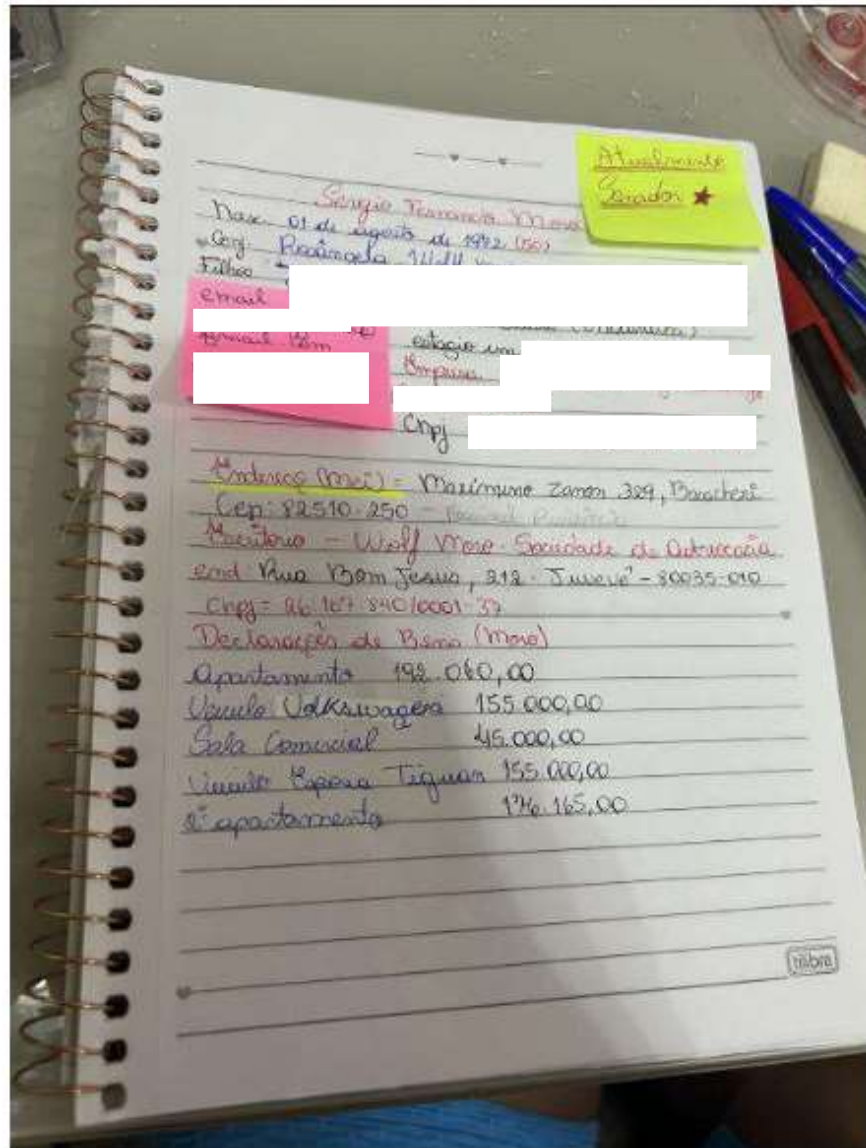 Atualmente
Senador
Sergio Fernando Moro
Nasc. 01 de agosto de 1972 (50)
Conj. Rosângela Wolff
Filhos
email
email
estagio em
Empresa
Cnpj
Endereço (Moi) = Maximino Zanon 329, Bacacheri
Cep: 82510-250
Escritorio - Wolf Moro Sociedade de Advocacia
end Rua Bom Jesus, 212 - Juvevê - 80035-010
Cnpj = 26.167.840/0001-37
Declarações de Bens (Moro)
Apartamento 192.060,00
Veiculo Volkswagen 155.000,00
Sala Comercial 45.000,00
Veiculo Esposa Tiguan 155.000,00
2º apartamento 176.165,00
tilibra